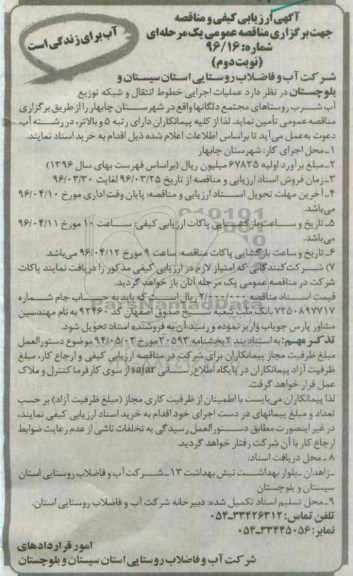 آگهی ارزیابی کیفی و مناقصه
جهت برگزاری مناقصه عمومی یک مرحله‌ای
شماره: ۹۶/۱۶
(نوبت دوم)
آب برای زندگی است
شرکت آب و فاضلاب روستایی استان سیستان و
بلوچستان در نظر دارد عملیات اجرایی خطوط انتقال و شبکه توزیع
آب شرب روستاهای مجتمع دلگانها واقع در شهرستان چابهار را از طریق برگزاری
مناقصه عمومی تأمین نماید. لذا از کلیه پیمانکاران دارای رتبه ۵ و بالاتر، در رشته آب
دعوت به عمل می‌آید تا براساس اطلاعات اعلام شده ذیل اقدام به خرید اسناد نمایند.
۱- محل اجرای کار: شهرستان چابهار
۲- مبلغ برآورد اولیه ۶۷۸۳۵ میلیون ریال (براساس فهرست بهای سال ۱۳۹۶)
۳- زمان فروش اسناد ارزیابی و مناقصه از تاریخ ۹۶/۰۳/۲۵ لغایت ۹۶/۰۳/۳۰
۴- آخرین مهلت تحویل اسناد ارزیابی و مناقصه: پایان وقت اداری مورخ ۹۶/۰۴/۱۰
می‌باشد.
۵- تاریخ و ساعت بازگشایی پاکات ارزیابی کیفی: ساعت ۱۰ مورخ ۹۶/۰۴/۱۱
می‌باشد.
۶- تاریخ و ساعت بازگشایی پاکات مناقصه: ساعت ۹ مورخ ۹۶/۰۴/۱۲ می‌باشد.
۷) شرکت‌کنندگانی که امتیاز لازم در ارزیابی کیفی مذکور را دریافت نمایند پاکات
شرکت در مناقصه عمومی یک مرحله آنان باز خواهد گردید.
قیمت اسناد مناقصه ریال است که باید به حساب جام شماره
۷۲۵۰۸۹۷۷۱۷ بانک ملت شعبه شیخ صدوق اصفهان کد ۹۲۴۶۰ به نام مهندسین
مشاور پارس جویاب واریز نموده و رسید آن به فروشنده اسناد تحویل شود.
تذکر مهم: به استناد بند ۲ بخشنامه ۳۰۵۹۳ مورخ ۹۴/۰۵/۰۳ موضوع دستورالعمل
مبلغ ظرفیت مجاز پیمانکاران برای شرکت در مناقصه ارزیابی کیفی و ارجاع کار، مبلغ
ظرفیت آزاد پیمانکاران در پایگاه اطلاع رسانی sajar از سوی کارفرما کنترل و ملاک
عمل قرار خواهد گرفت.
لذا پیمانکاران می‌بایست با اطمینان از ظرفیت کاری مجاز (مبلغ ظرفیت آزاد) بر حسب
تعداد و مبلغ پیمانهای در دست اجرای خود اقدام به خرید اسناد ارزیابی کیفی نمایند،
در غیر اینصورت مطابق دستورالعمل رسیدگی به تخلفات ناشی از عدم رعایت ضوابط
ارجاع کار با آن شرکت رفتار خواهد گردید.
۸- محل دریافت اسناد:
زاهدان- بلوار بهداشت نبش بهداشت ۱۳- شرکت آب و فاضلاب روستایی استان
سیستان و بلوچستان
۹- محل تسلیم اسناد تکمیل شده: دبیرخانه شرکت آب و فاضلاب روستایی استان.
تلفن تماس: ۳۳۴۲۶۳۱۲-۰۵۴
نمابر: ۳۳۴۴۵۰۵۶-۰۵۴
امور قراردادهای
شرکت آب و فاضلاب روستایی استان سیستان و بلوچستان